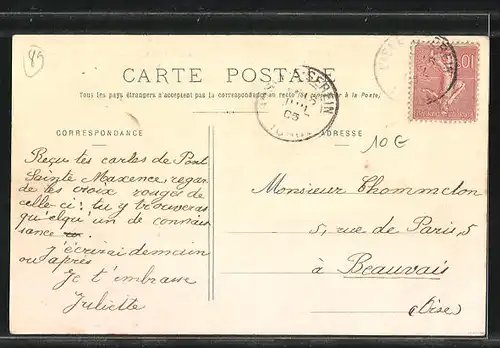 89
CARTE POSTALE
Tous les pays étrangers n'acceptent pas la correspondance au recto (se renseigner à la Poste)
CORRESPONDANCE
ADRESSE
10 €
Reçu tes cartes de Pont
Sainte Maxence regar
de les croix rouges de
celle-ci : tu y trouveras
qu'elqu'un de connais
sance
j'écrirai demain
ou après
Je t'embrasse
Juliette
Monsieur Thommelon
5, rue de Paris, 5
à Beauvais
(Oise)
SEREIN
05
10